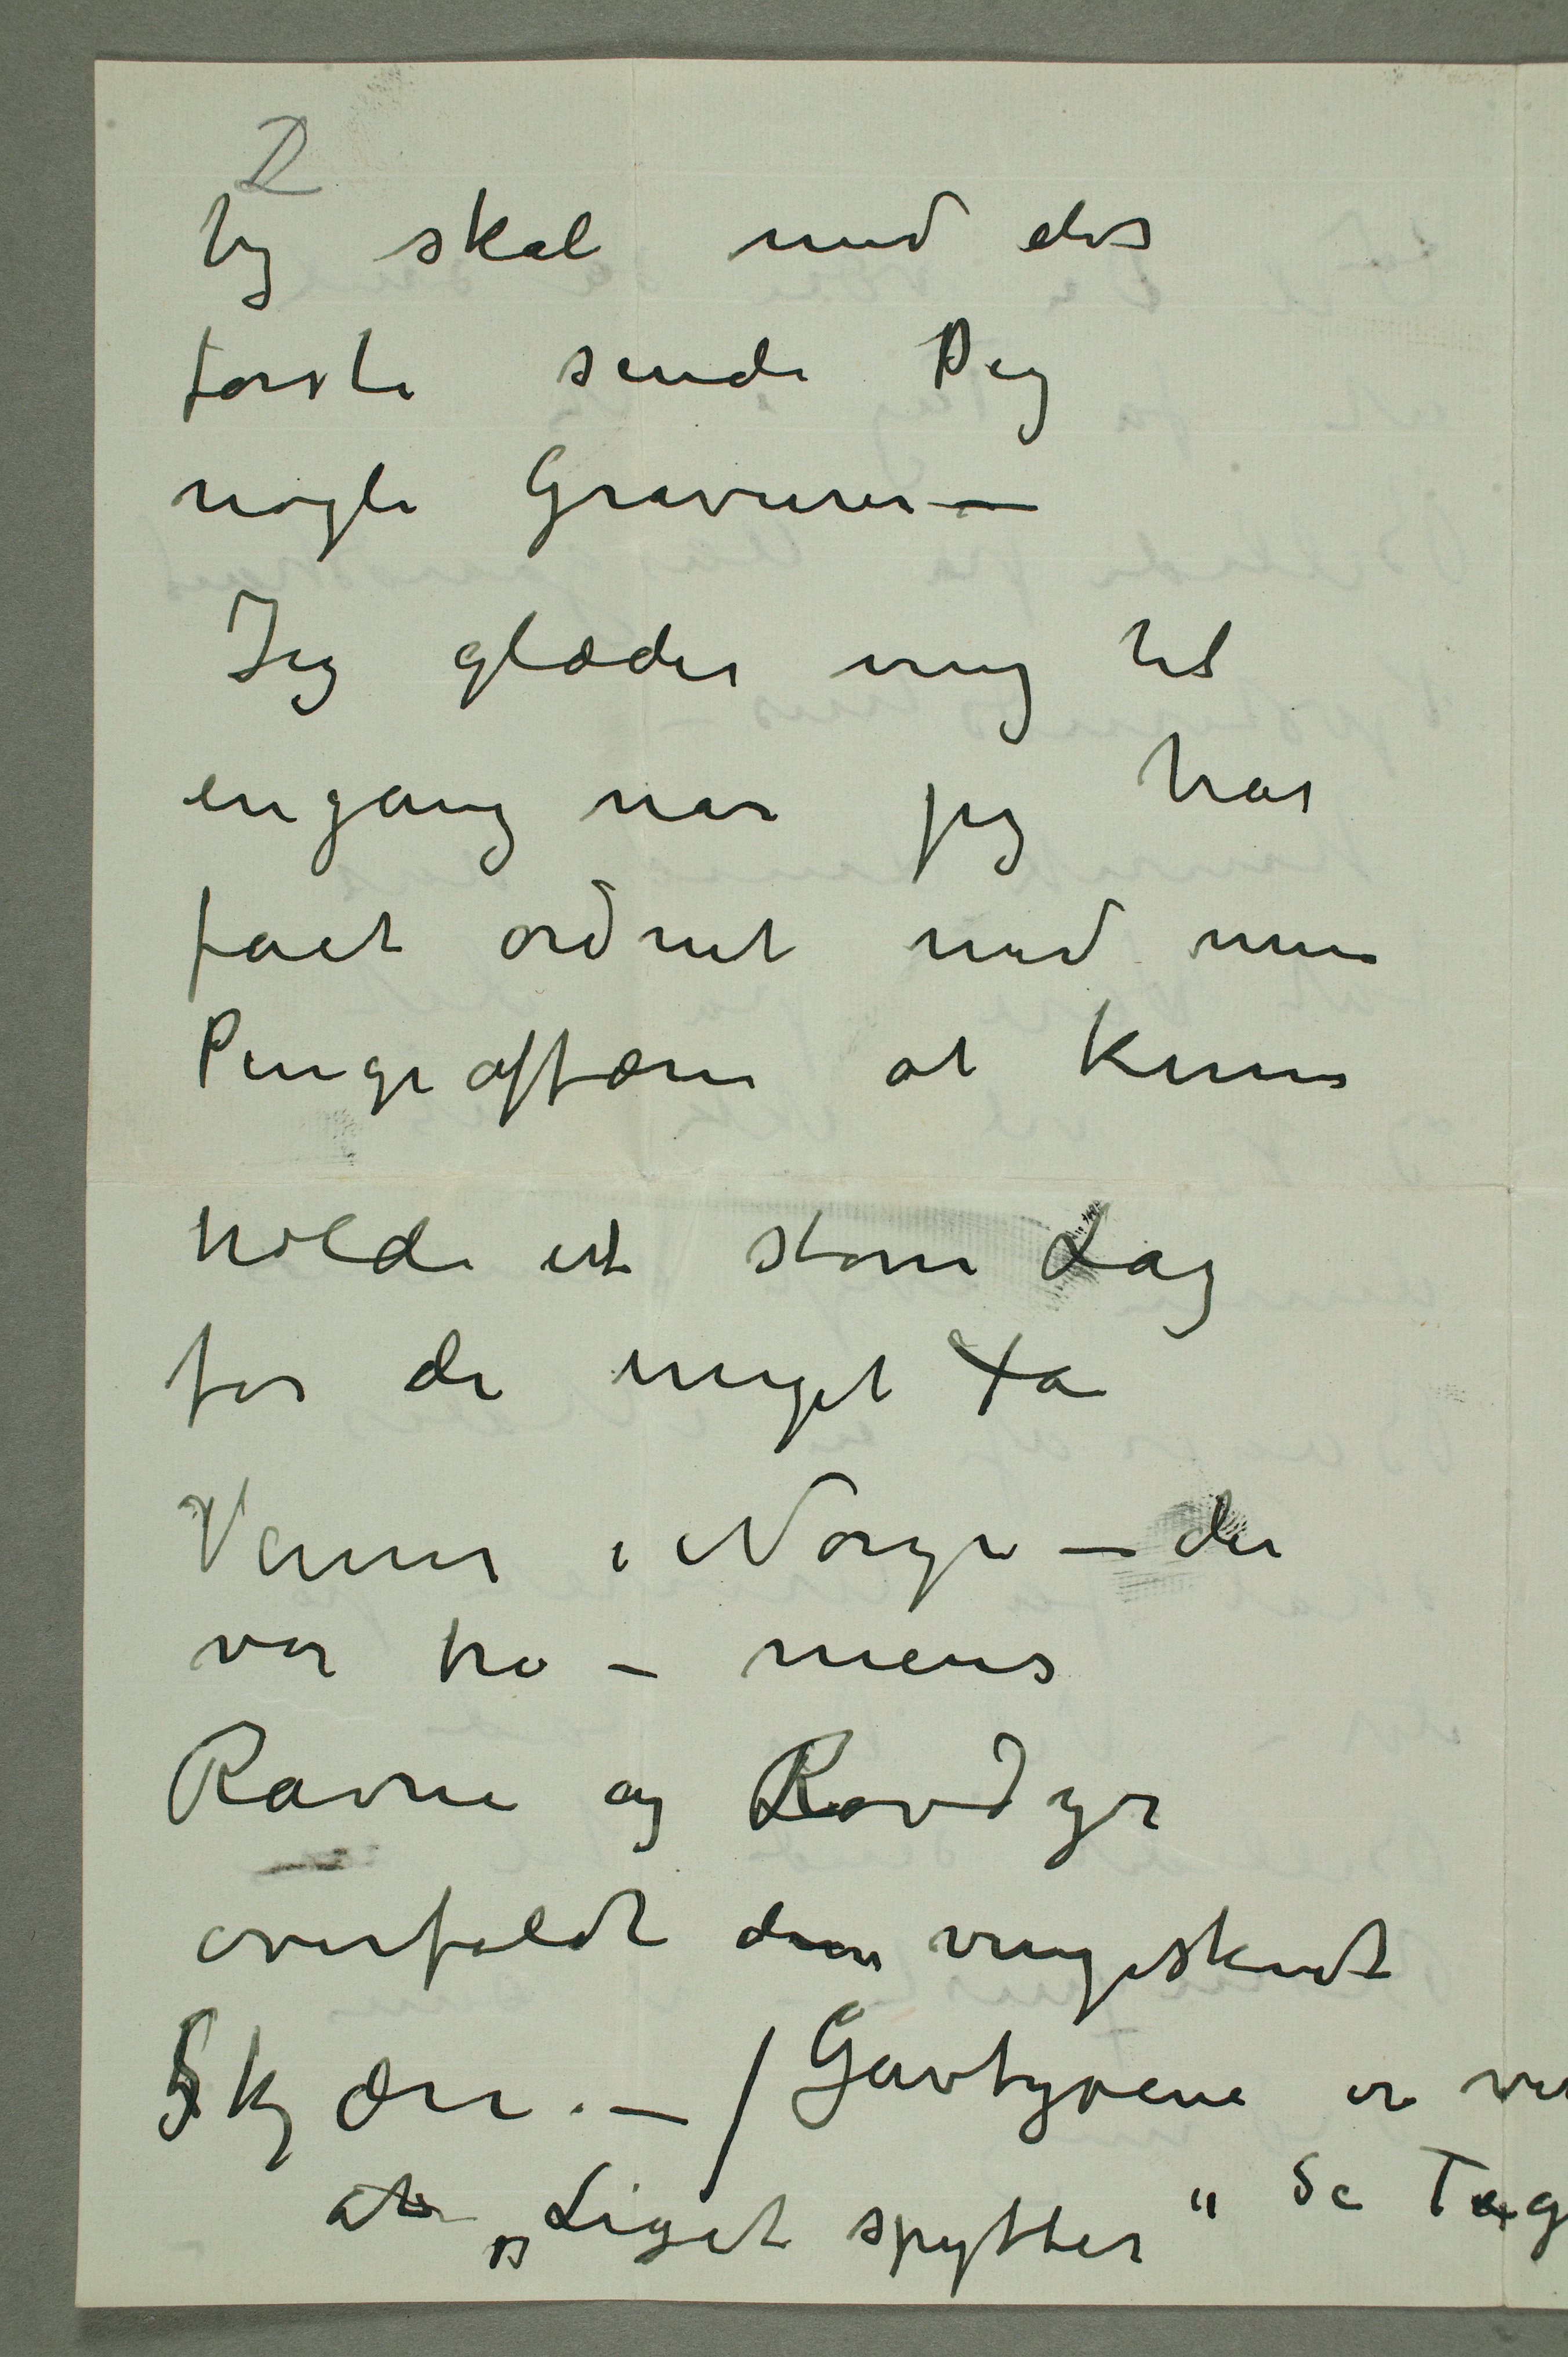 2
Jeg skal med det
første sende Dig
nogle Gravurer —
Jeg glæder mig til
engang når jeg har
fået ordnet med mine
Pengeaffærer at kunne
holde et større Lag
for de meget få
Venner i Norge — der
var tro – mens
Ravne og Rovdyr
overfaldt den vingeskudt
Skjære. — / Gavtyvene er
at „Liget spytter" Se Tag